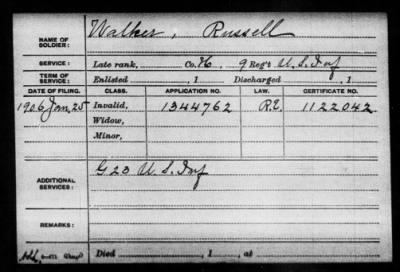 NAME OF SOLDIER: Walker, Russell
SERVICE: Late rank, Co. H, 9 Reg't U.S. Inf
TERM OF SERVICE: Enlisted , 1 Discharged , 1
DATE OF FILING. CLASS. APPLICATION NO. LAW. CERTIFICATE NO.
1906 Jan 25 Invalid, 1344762 R.E. 1122042
Widow,
Minor,
ADDITIONAL SERVICES: G 23 U.S. Inf
REMARKS:
Died , 1 , at